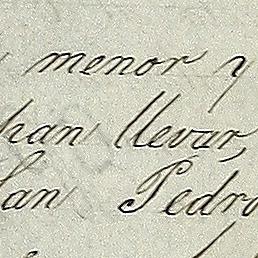 menor y
han llevar,
San Pedro